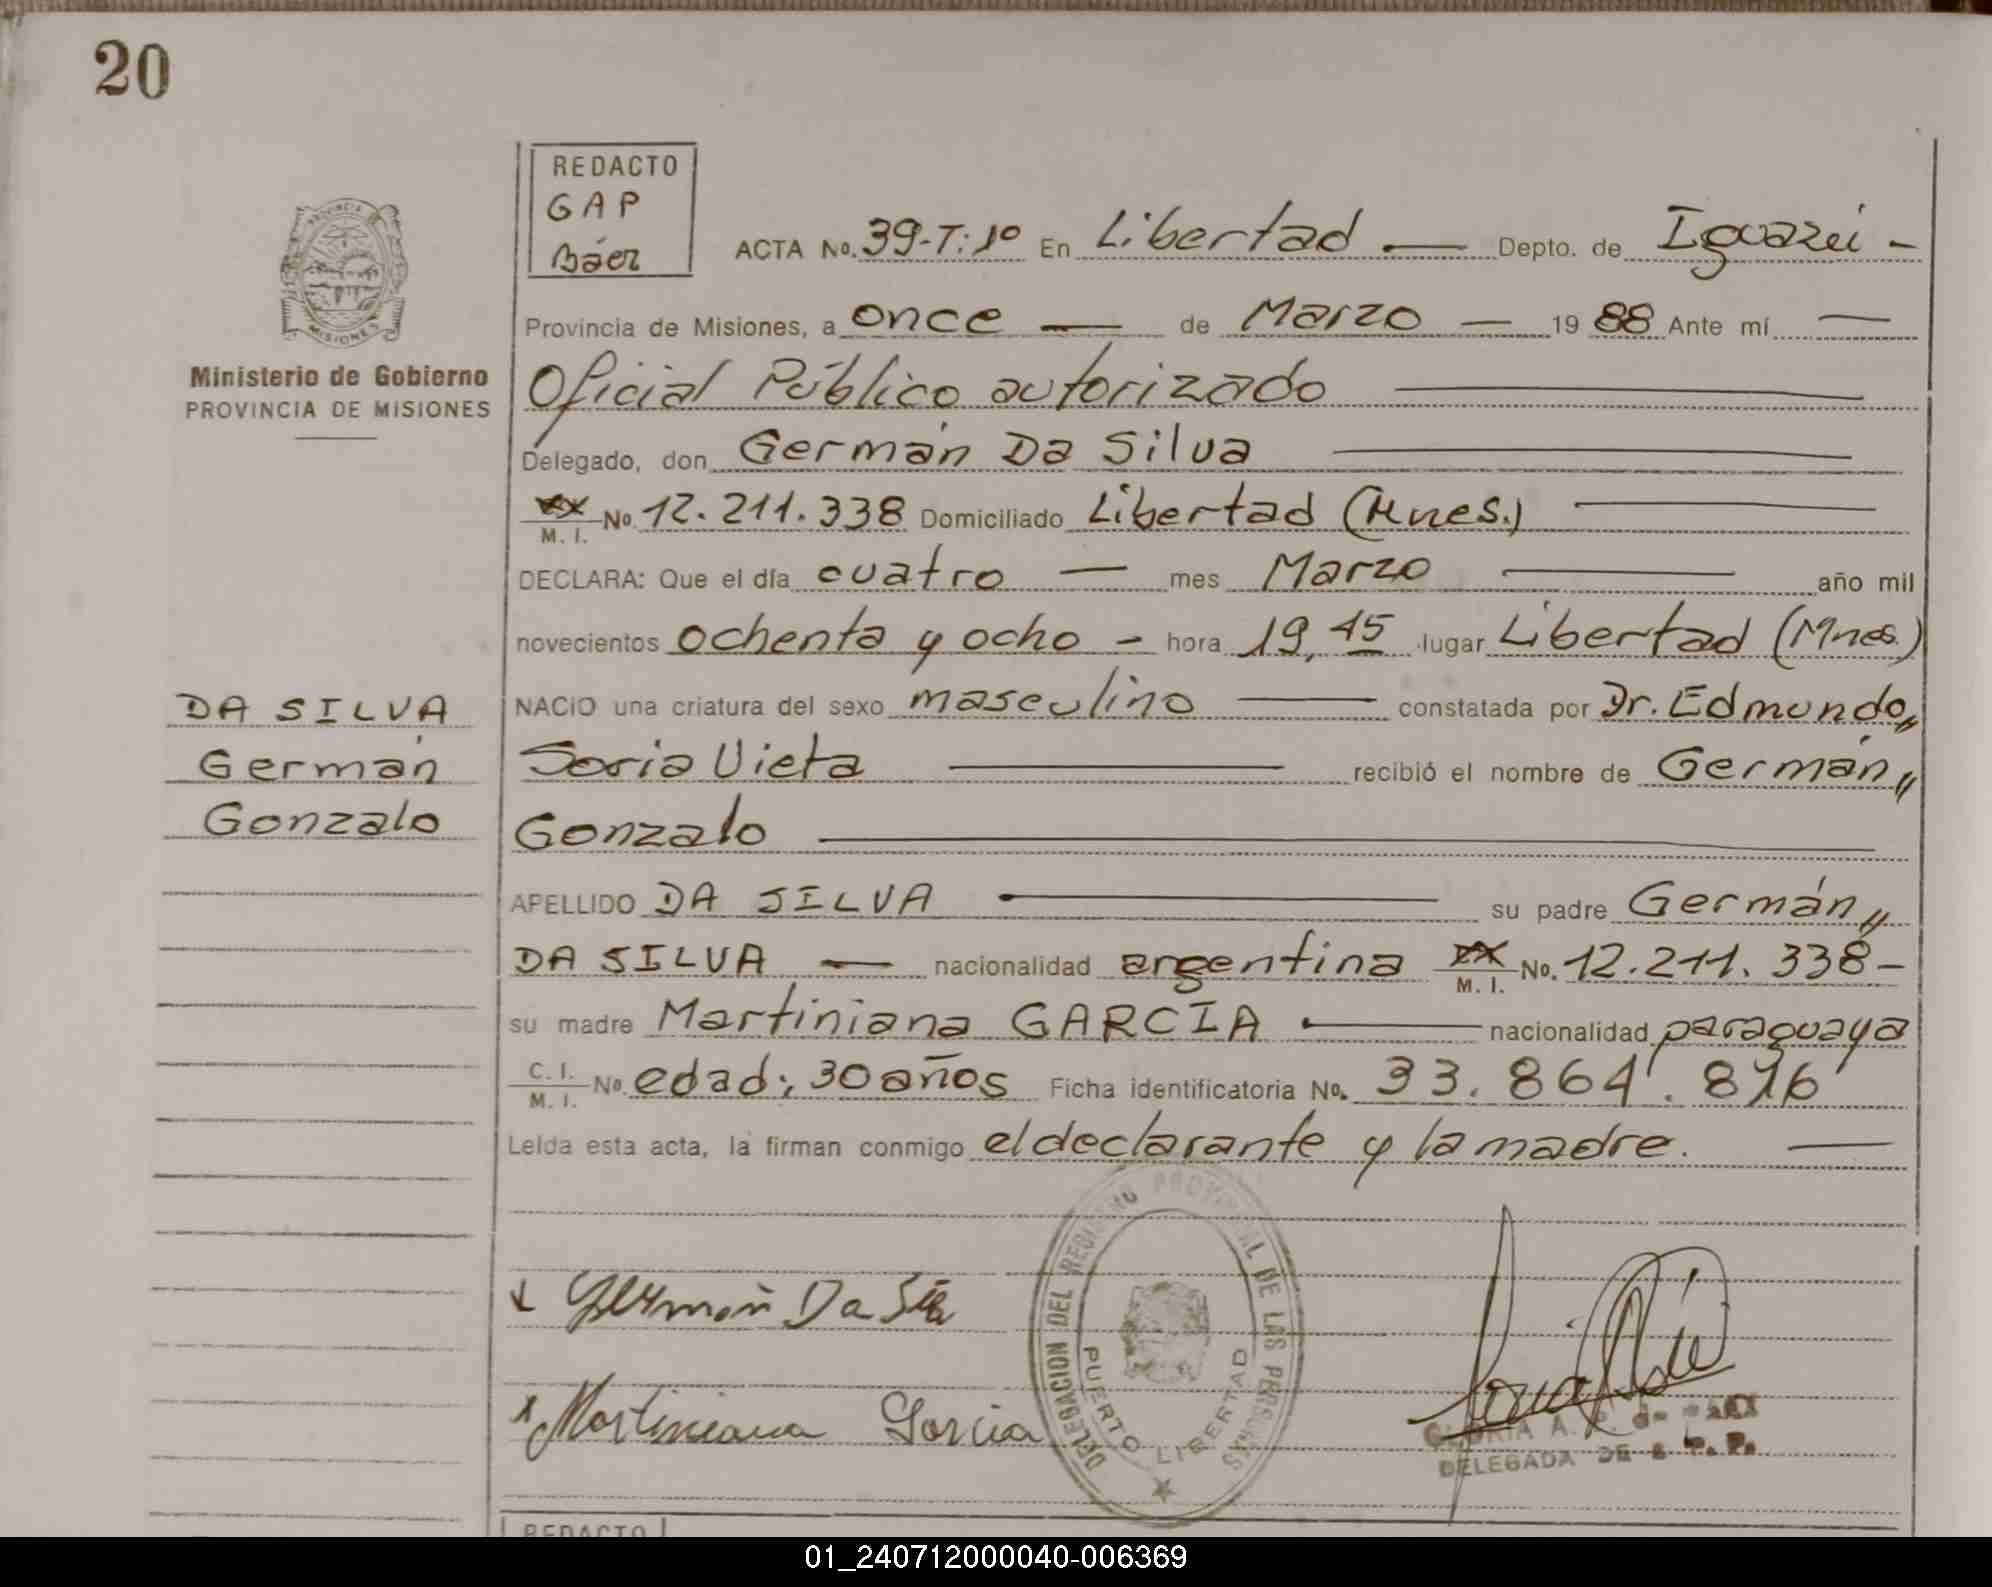 20
REDACTO
GAP
Báez
ACTA No. 39-T:1º En Libertad — Depto. de Iguazú -
Provincia de Misiones, a once — de Marzo — 19 88 Ante mí —
Ministerio de Gobierno
PROVINCIA DE MISIONES
Oficial Público autorizado
Delegado, don Germán Da Silva
M. I. No. 12.211.338 Domiciliado Libertad (Mnes.)
DECLARA: Que el día cuatro — mes Marzo — año mil
novecientos ochenta y ocho - hora 19,45 lugar Libertad (Mnes.)
NACIO una criatura del sexo masculino — constatada por Dr. Edmundo,,
Soria Vieta — recibió el nombre de Germán,,
Gonzalo
DA SILVA
Germán
Gonzalo
APELLIDO DA SILVA — su padre Germán,,
DA SILVA — nacionalidad argentina M. I. No. 12.211.338-
su madre Martiniana GARCIA — nacionalidad paraguaya
C. I. M. I. No. edad: 30 años Ficha identificatoria No. 33.864.816
Leída esta acta, la firman conmigo el declarante y la madre. —
Germán Da Silva
Martiniana Garcia
DELEGACION DEL REGISTRO PROVINCIAL DE LAS PERSONAS
PUERTO LIBERTAD
GLORIA A. R. de
DELEGADA DE
REDACTO
01_240712000040-006369